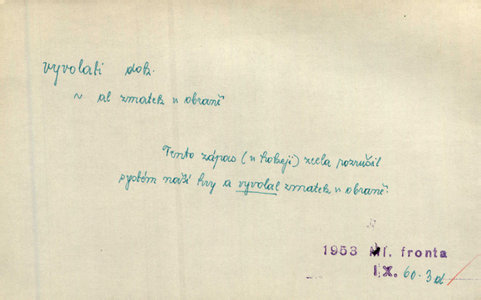 vyvolati dok.
~ al zmatek v obraně
Tento zápas (v hokeji) zcela porušil
systém naší hry a vyvolal zmatek v obraně.
1953 Ml. fronta
IX. 60. 3d